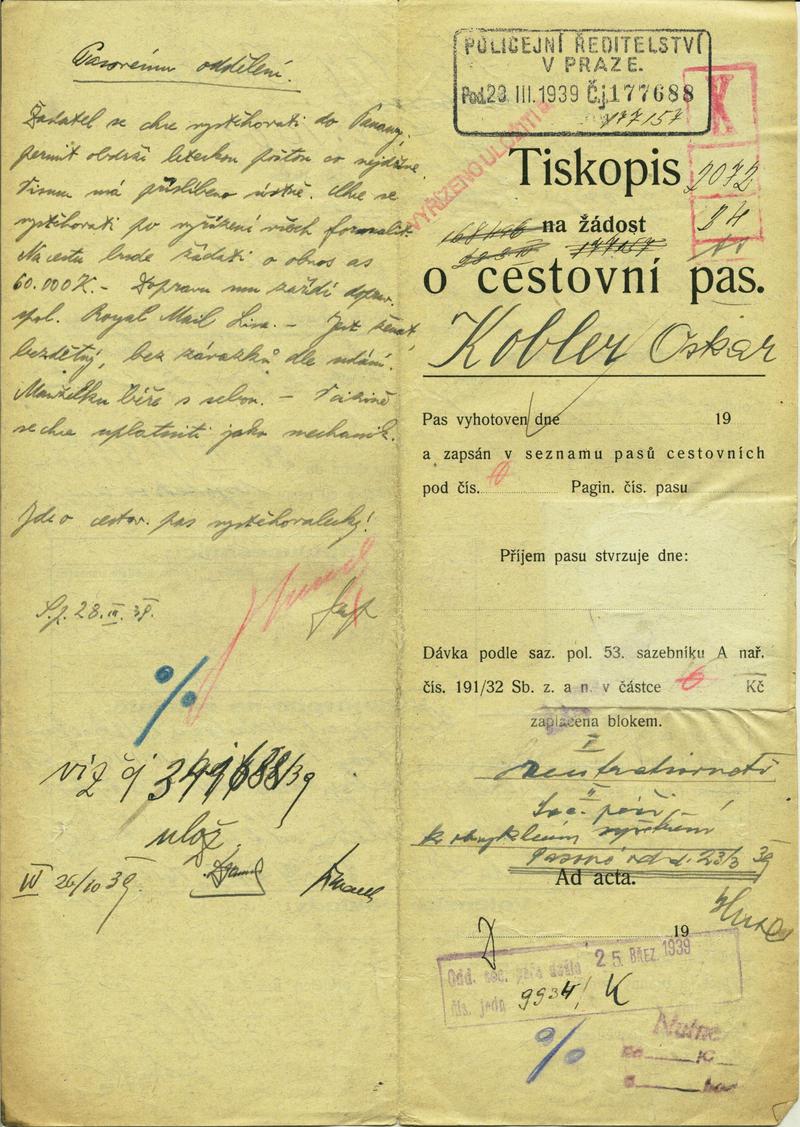 Pasovému oddělení.
Žadatel se chce vystěhovati do Penang,
permit obdrží leteckou poštou co nejdříve
Visum má přislíbeno ústně. Chce se
vystěhovati po vyřízení všech formalit.
Na cestu bude žádati o obnos as
60.000 K.- Dopravu mu zařídí doprav.
spol. Royal Mail Line. - Jest ženat,
bezdětný, bez závazků dle udání.
Manželku béře s sebou. -
se chce uplatniti jako mechanik.
Jde o cestov. pas vystěhovalecký!
28. III. 39.
%
viz čj
ulož
IV 26/10 39.
POLICEJNÍ ŘEDITELSTVÍ
V PRAZE.
Pod. 23. III. 1939 Č.j. 177688
177157
K
VYŘÍZENO ULOŽITI
Tiskopis
2072
na žádost
177157
o cestovní pas.
Kobler Oskar
Pas vyhotoven dne 19
a zapsán v seznamu pasů cestovních
pod čís. Pagin. čís. pasu
Příjem pasu stvrzuje dne:
Dávka podle saz. pol. 53. sazebníku A nař.
čís. 191/32 Sb. z. a n. v částce Kč
zaplacena blokem.
I
II
Soc. péči
k obvyklému
Pasové odd. 23/3 39
Ad acta.
19
Odd. soc. péče došlo 25 BŘEZ. 1939
čís. jedn. 9934/ K
%